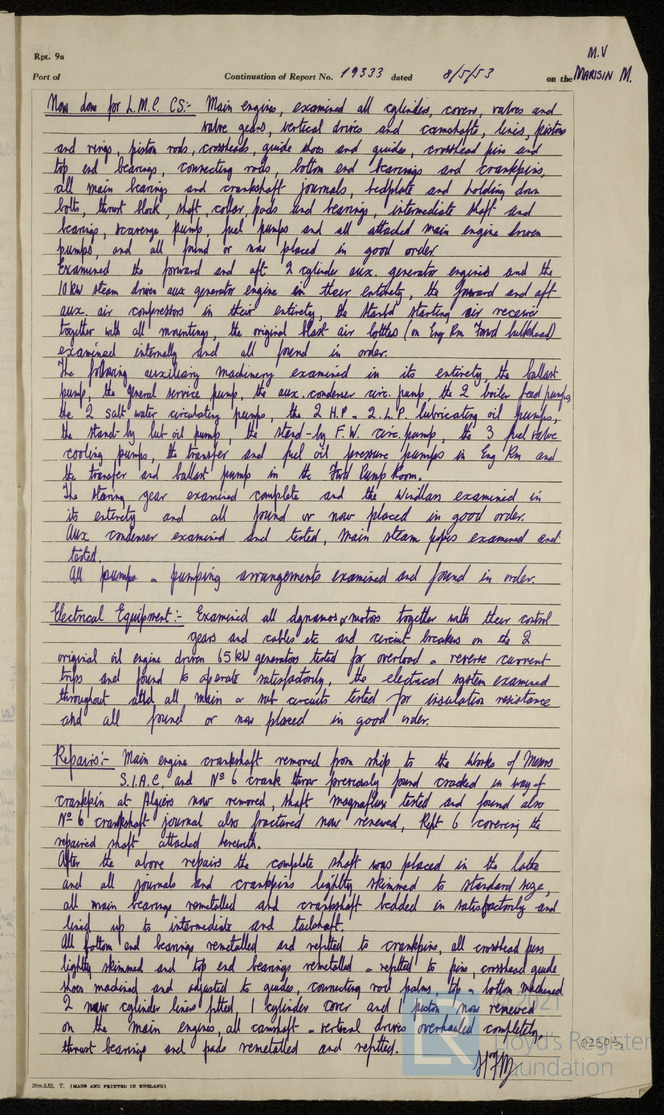 Rpt. 9a
M.V
Port of Continuation of Report No. 19333 dated 8/5/53 on the MARISIN M.
Now done for L.M.C. CS:- Main engines, examined all cylinders, covers, valves and
valve gears, vertical drives and camshafts, liners, pistons
and rings, piston rods, crossheads, guide shoes and guides, crosshead pins and
top end bearings, connecting rods, bottom end bearings and crankpins,
all main bearings and crankshaft journals, bedplate and holding down
bolts, thrust block, shaft, collar, pads and bearings, intermediate shaft and
bearings, scavenge pump, fuel pumps and all attached main engine driven
pumps, and all found or now placed in good order.
Examined the forward and aft 2 cylinder aux. generator engines and the
10 kw steam driven aux generator engine in their entirety, the forward and aft
aux. air compressors in their entirety, the starb'd starting air receiver
together with all mountings, the original blast air bottles (on Eng Rm Forwd bulkhead)
examined internally and all found in order.
The following auxiliary machinery examined in its entirety, the ballast
pump, the general service pump, the aux. condenser circ. pump, the 2 boiler feed pumps,
the 2 salt water circulating pumps, the 2 H.P. & 2 L.P. lubricating oil pumps,
the stand-by lub oil pump, the stand-by F.W. circ. pump, the 3 fuel valve
cooling pumps, the transfer and fuel oil pressure pumps in Eng Rm and
the transfer and ballast pump in the Fwd Pump Room.
The steering gear examined complete and the Windlass examined in
its entirety and all found or now placed in good order.
Aux condenser examined and tested, main steam pipes examined and
tested.
All pumps & pumping arrangements examined and found in order.
Electrical Equipment:- Examined all dynamos & motors together with their control
gears and cables etc and circuit breakers on the 2
original oil engine driven 65 kW generators tested for overload & reverse current
trips and found to operate satisfactorily, the electrical system examined
throughout and all main & sub circuits tested for insulation resistance
and all found or now placed in good order.
Repairs:- Main engine crankshaft removed from ship to the Works of Messrs
S.I.A.C. and No 6 crank throw previously found cracked in way of
crankpin at Algiers now removed, shaft magnaflux tested and found also
No 6 crankshaft journal also fractured now renewed, Rpt 6 covering the
repaired shaft attached herewith.
After the above repairs the complete shaft was placed in the lathe
and all journals and crankpins lightly skimmed to standard size,
all main bearings remetalled and crankshaft bedded in satisfactorily and
lined up to intermediate and tailshaft.
All bottom end bearings remetalled and refitted to crankpins, all crosshead pins
lightly skimmed and top end bearings remetalled & refitted to pins, crosshead guide
shoes machined and adjusted to guides, connecting rod palms, top & bottom machined
2 new cylinder liners fitted 1 cylinder cover and piston now renewed
on the main engines, all camshaft & vertical drives overhauled completely,
thrust bearings and pads remetalled and refitted.
© 2021
Lloyd's Register
Foundation
20m.5.52. T. (MADE AND PRINTED IN ENGLAND)